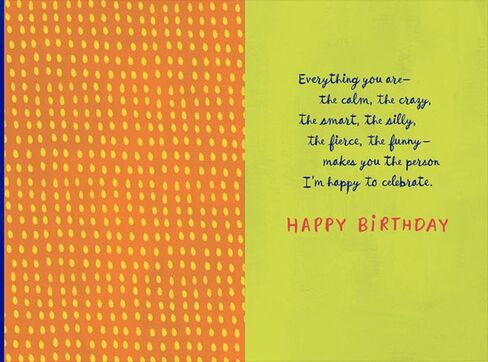 Everything you are—
the calm, the crazy,
the smart, the silly,
the fierce, the funny—
makes you the person
I'm happy to celebrate.
HAPPY BIRTHDAY